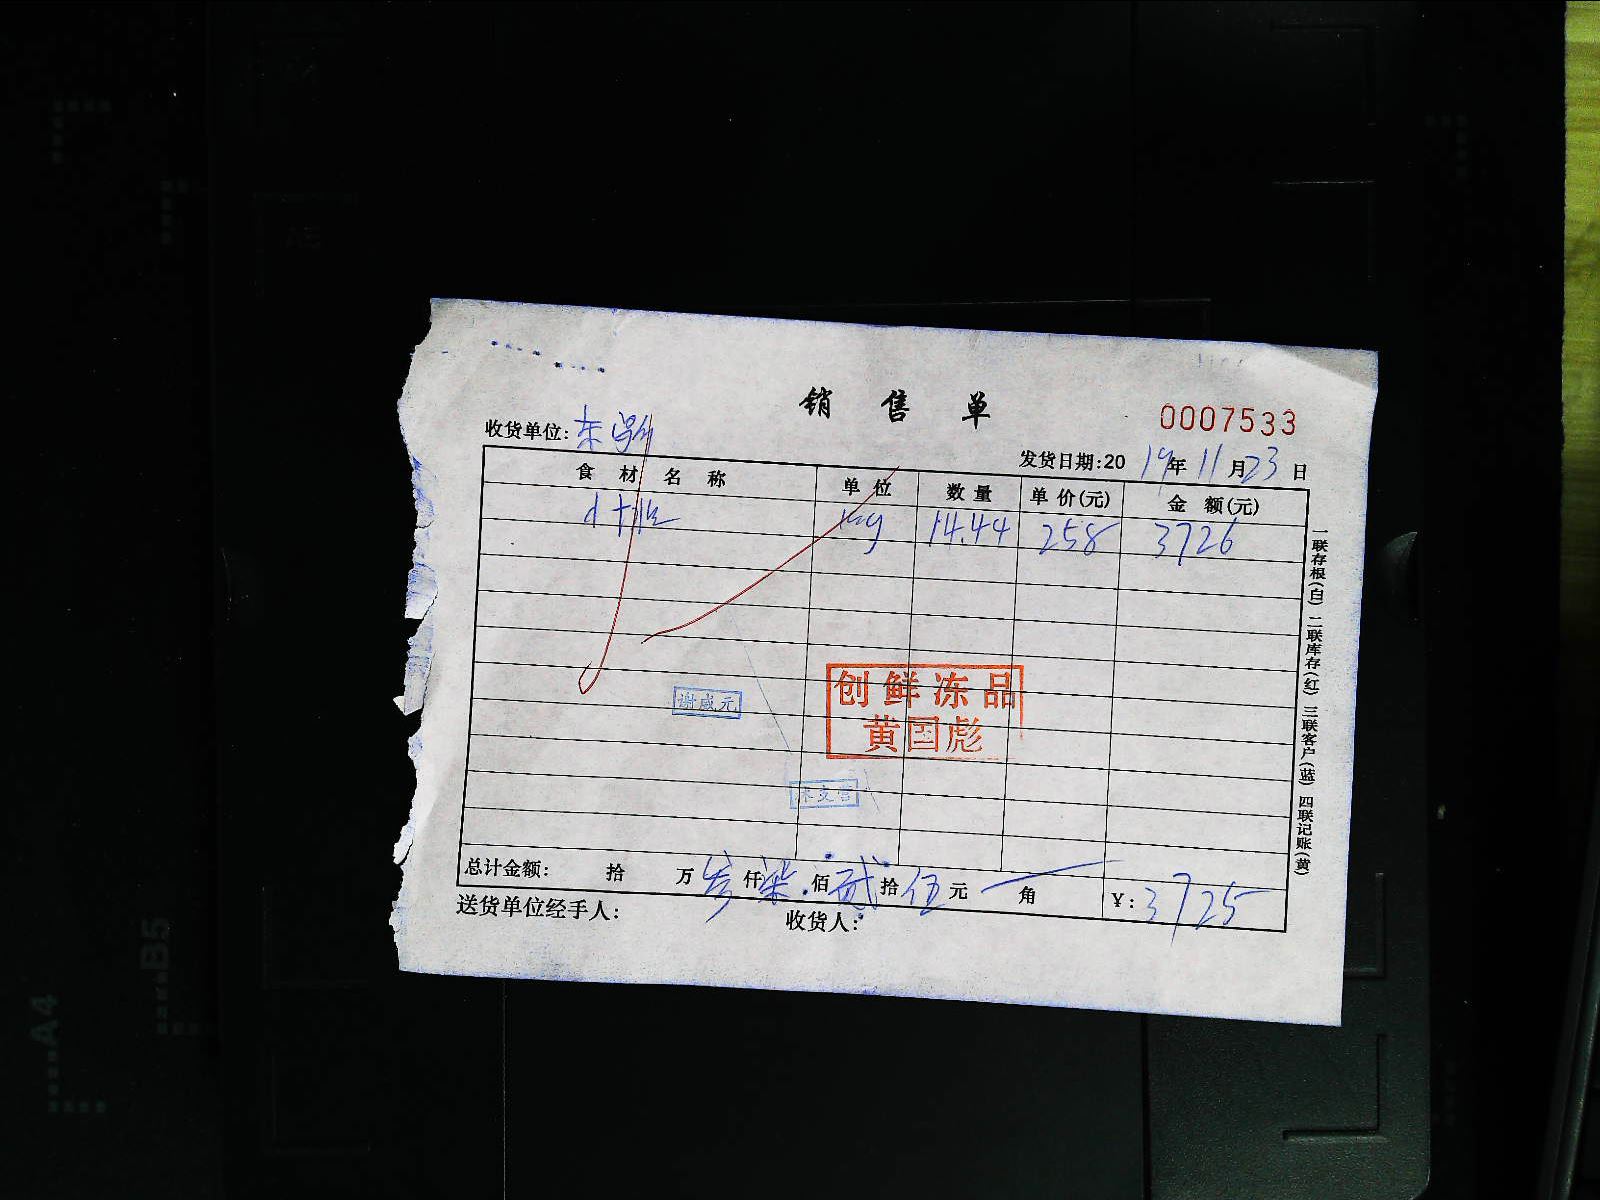 销售单
0007533
收货单位:东
发货日期:2019年11月23日
食材名称 单位 数量 单价(元) 金额(元)
kg 14.44 258 3726
谢威元
创鲜冻品
黄国彪
总计金额: 拾 万叁仟柒佰贰拾伍元 角 ¥:3725
送货单位经手人: 收货人:
一联存根(白) 二联库存(红) 三联客户(蓝) 四联记账(黄)
A4
B5
A5